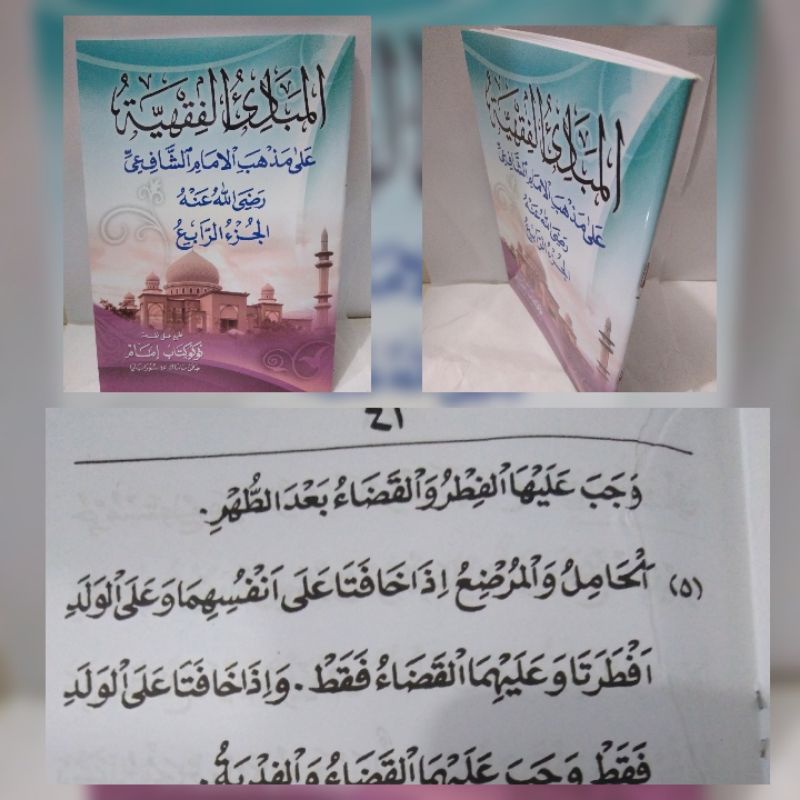 المَبَادِئُ الفِقْهِيَّةُ
عَلَى مَذْهَبِ الْإِمَامِ الشَّافِعِيِّ
رَضِيَ اللهُ عَنْهُ
الجُزْءُ الرَّابِعُ
طبع على نفقة
توكو كتاب إمام
المَبَادِئُ الفِقْهِيَّةُ
عَلَى مَذْهَبِ الْإِمَامِ الشَّافِعِيِّ
رَضِيَ اللهُ عَنْهُ
الجُزْءُ الرَّابِعُ
٢١
وَجَبَ عَلَيْهَا الْفِطْرُ وَالْقَضَاءُ بَعْدَ الطُّهْرِ.
(٥) اَلْحَامِلُ وَالْمُرْضِعُ اِذَا خَافَتَا عَلَى اَنْفُسِهِمَا وَعَلَى الْوَلَدِ
اَفْطَرَتَا وَعَلَيْهِمَا الْقَضَاءُ فَقَطْ. وَاِذَا خَافَتَا عَلَى الْوَلَدِ
فَقَطْ وَجَبَ عَلَيْهِمَا الْقَضَاءُ وَالْفِدْيَةُ.